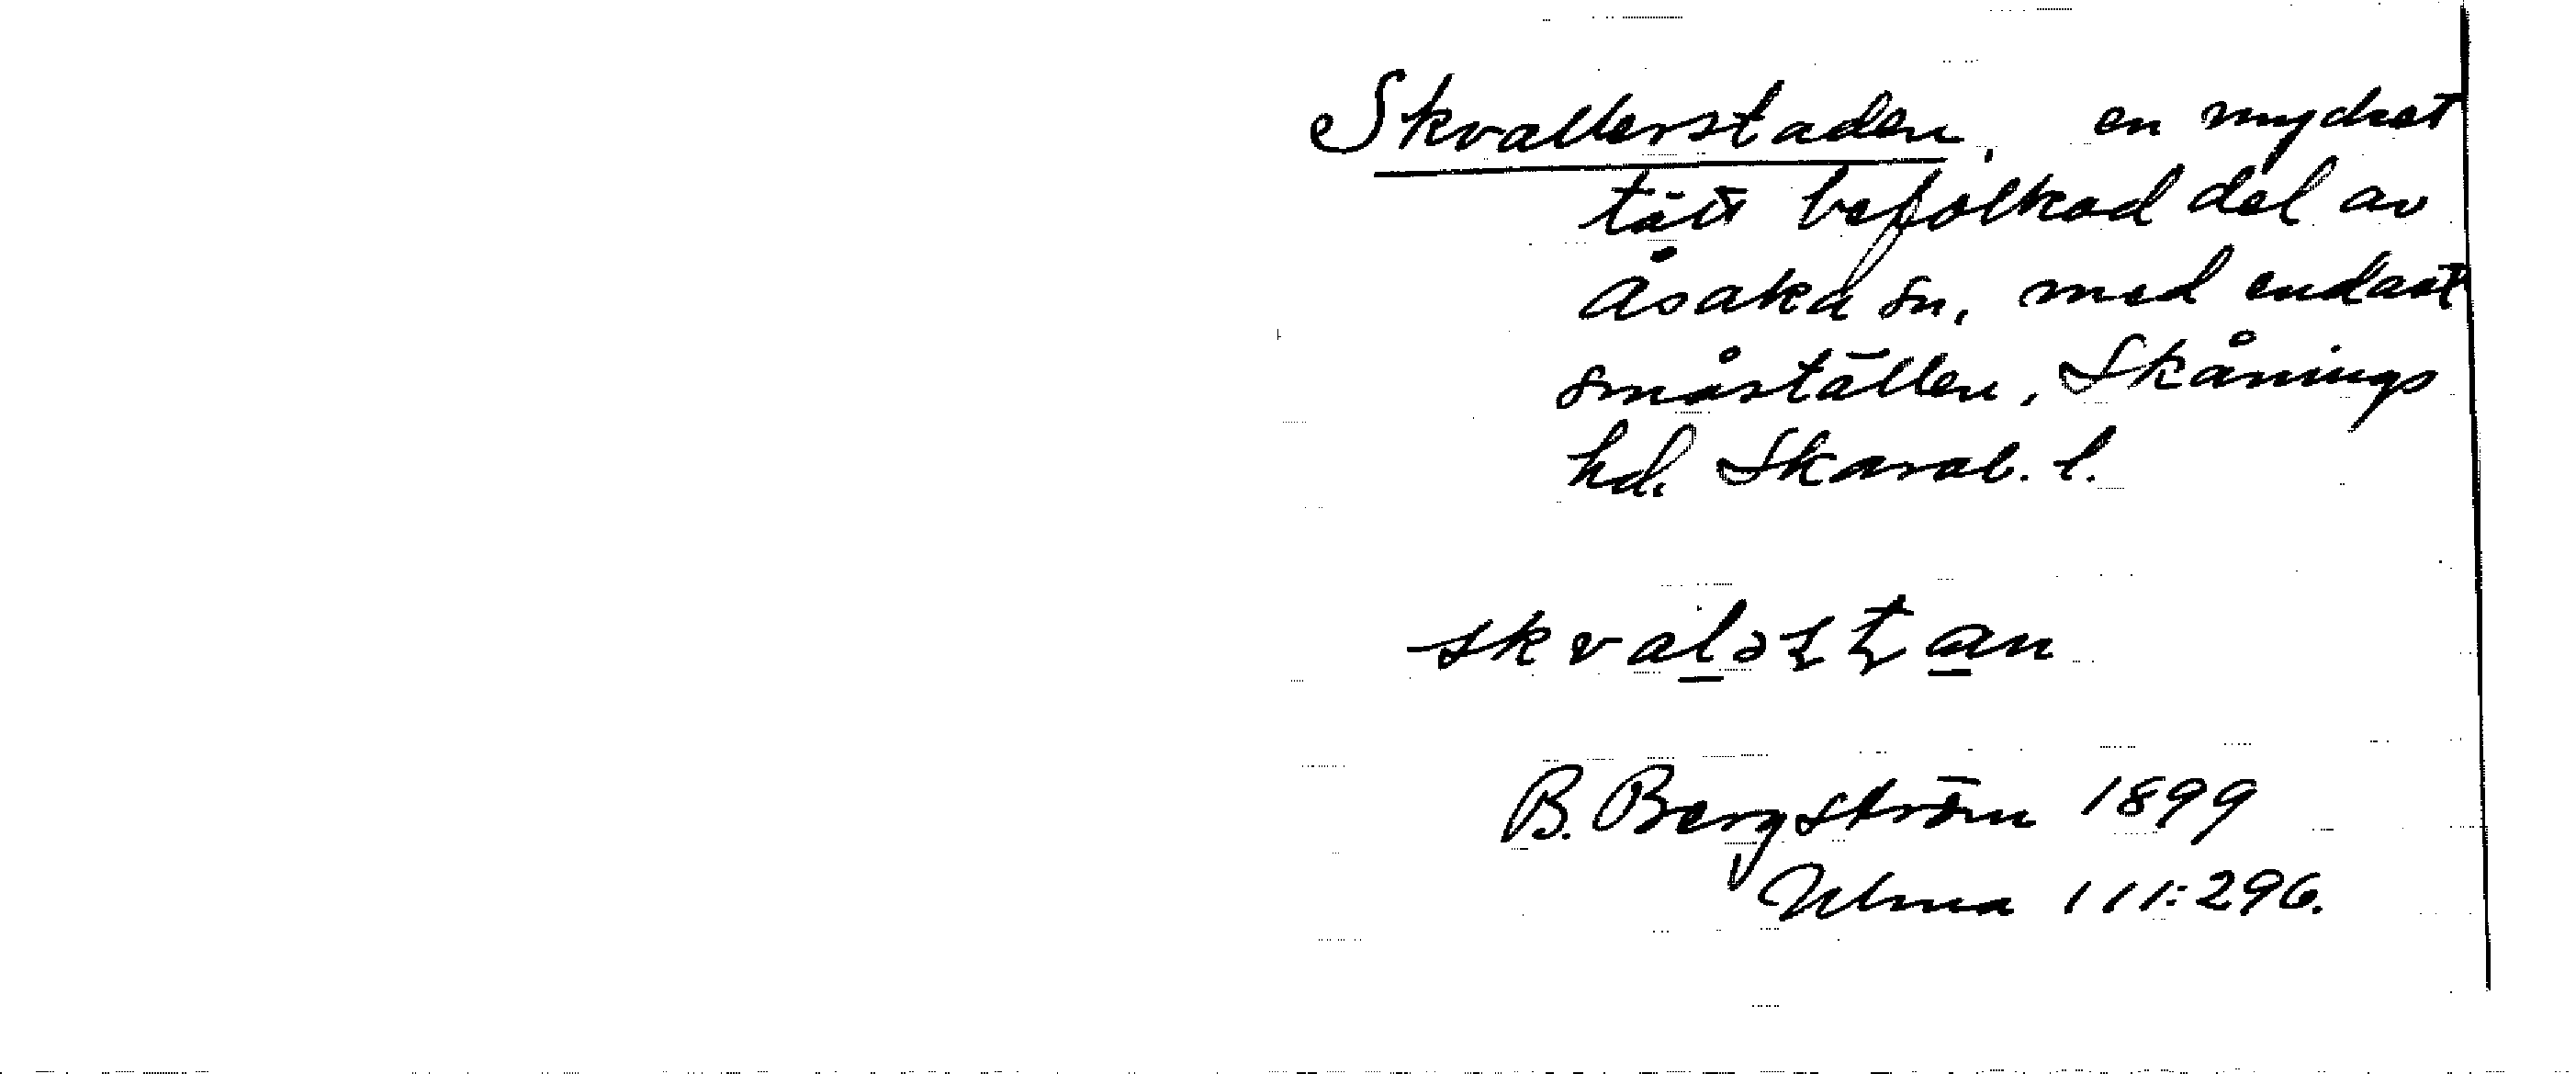 Skvallerstaden, en mycket
tätt befolkad del av
Åsaka sn, med endast
småställen, Skånings
hd. Skarab. l.
B. Bergström 1899
Ulma 111:296.